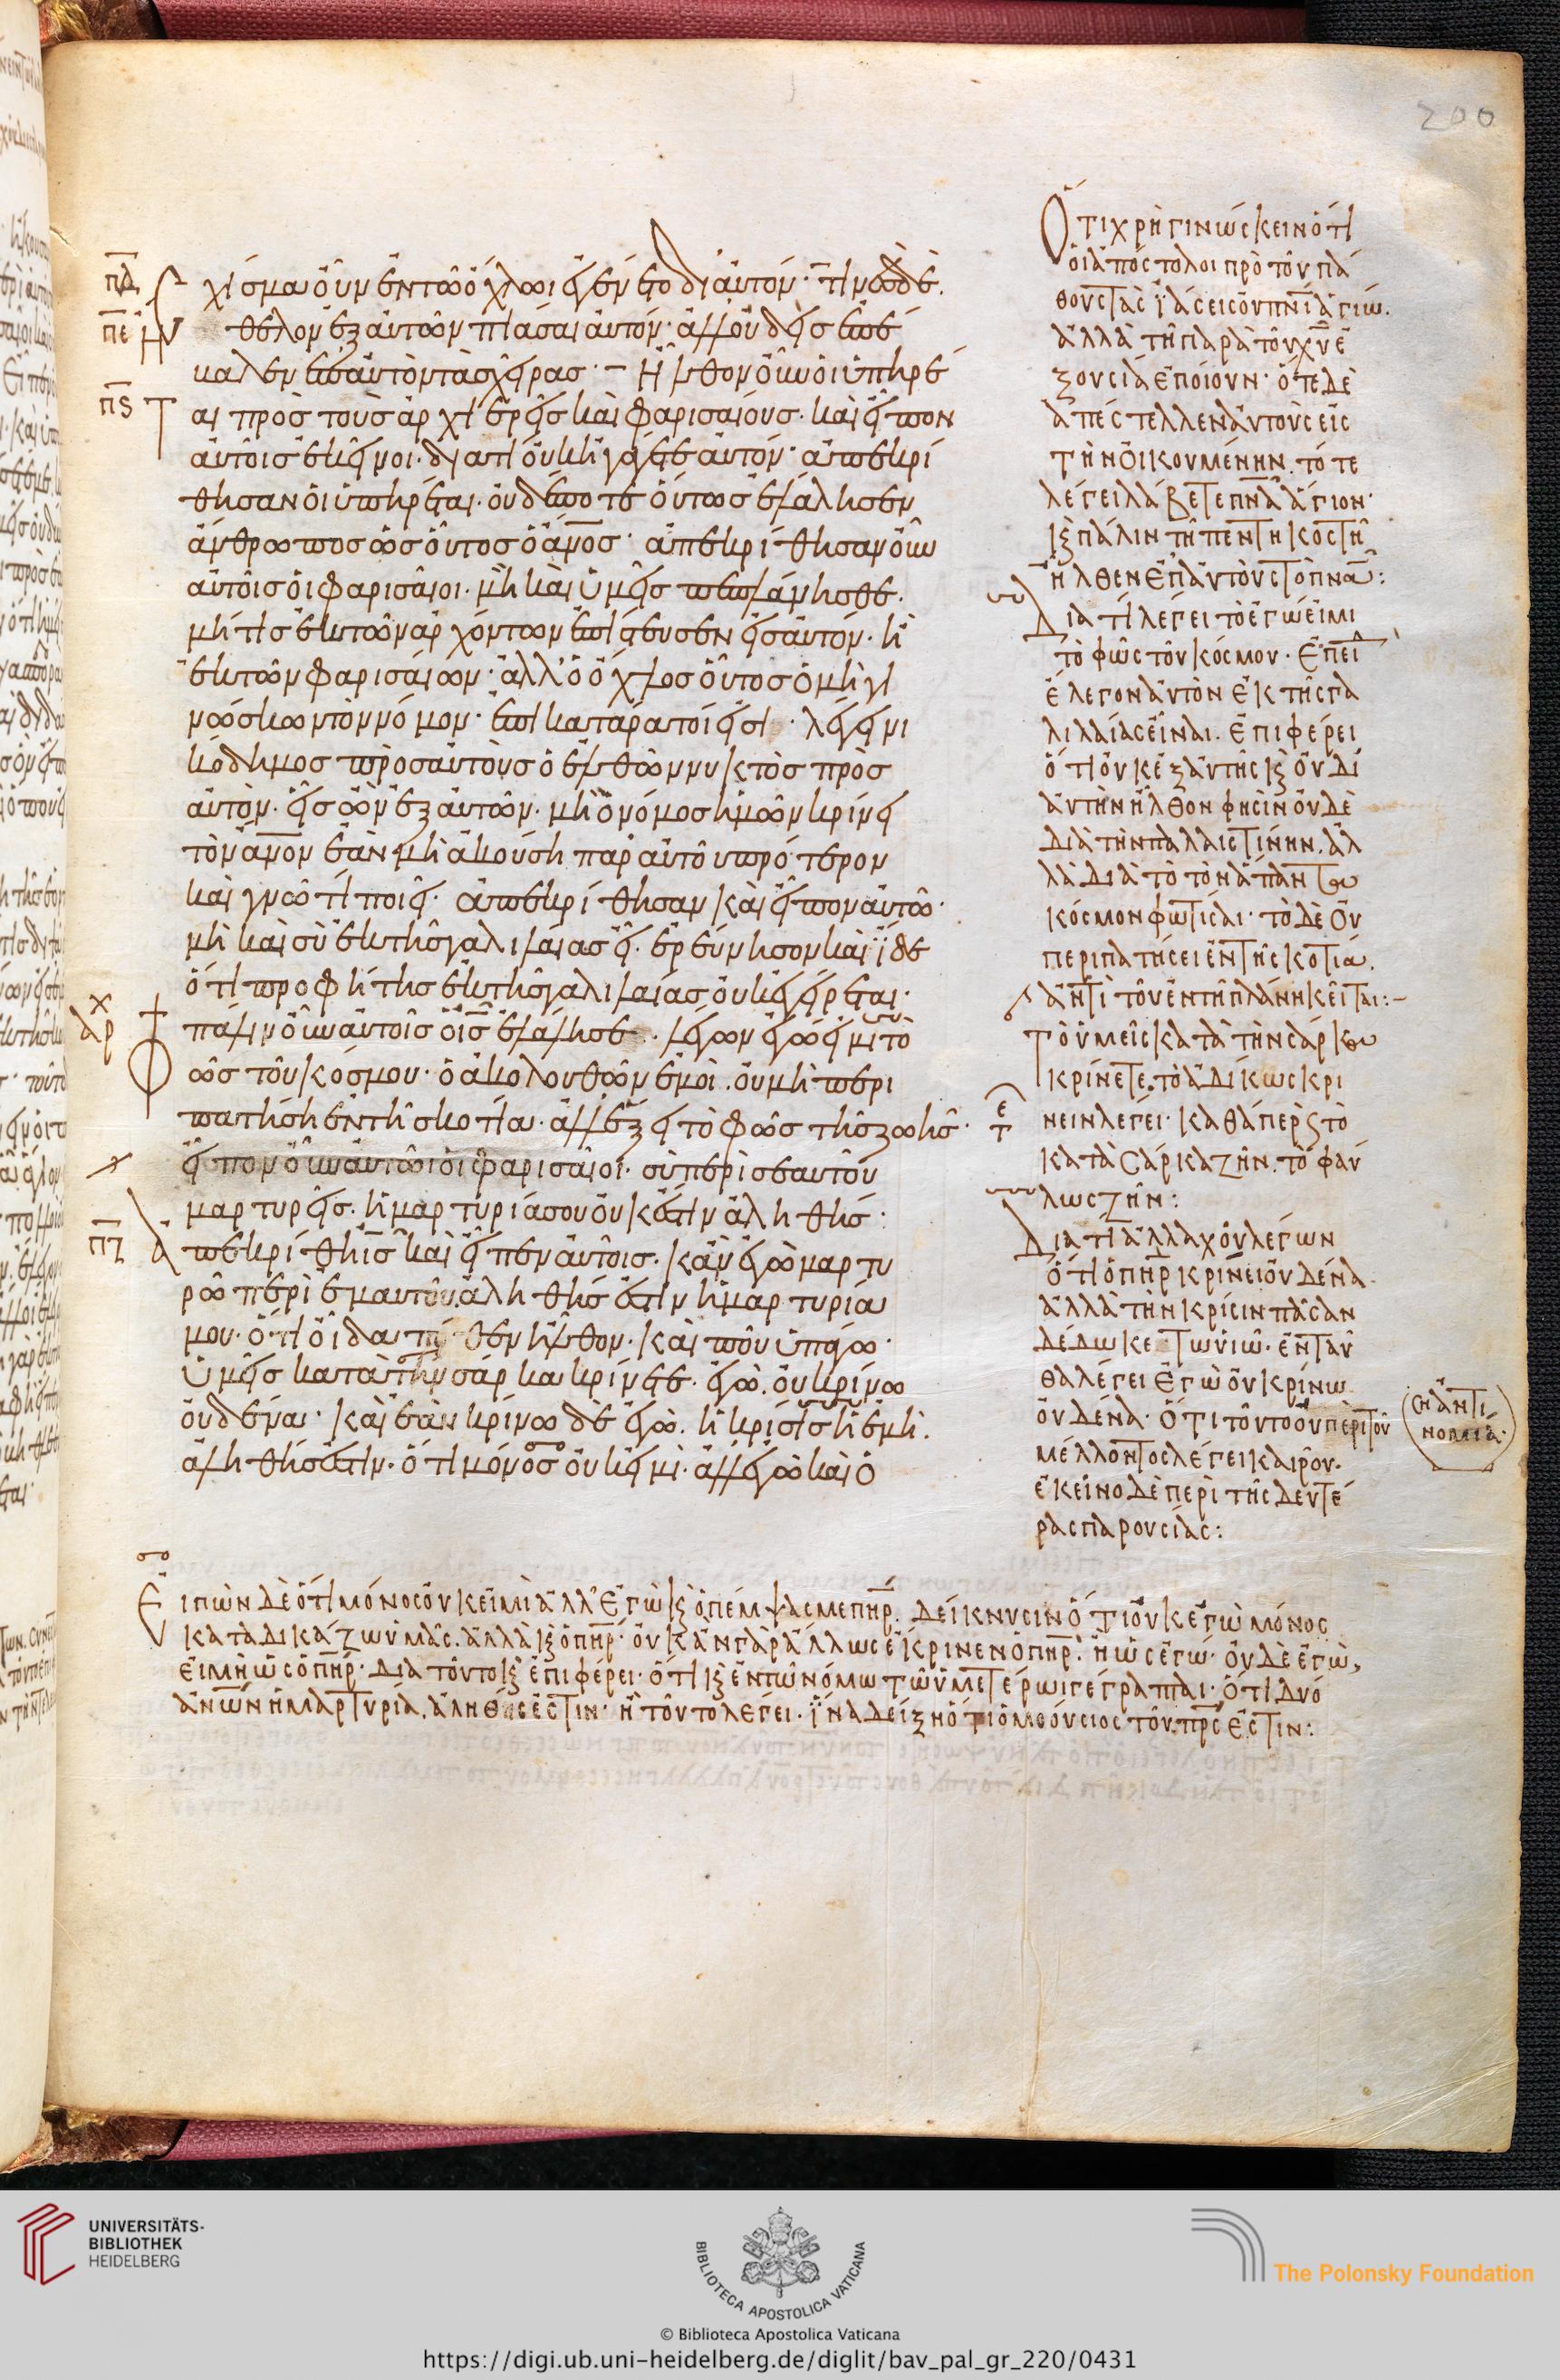 200
πδ Σχίσμα οὖν ἐν τῶ ὄχλωι ἐγένετο δι' αὐτόν· τινὲς δὲ
πε ἤθελον ἐξ αὐτῶν πιάσαι αὐτόν· ἀλλ' οὐδεὶς ἐπέ
βαλεν ἐπ' αὐτὸν τὰς χεῖρας· Ἦλθον οὖν οἱ ὑπηρέ
πς ται πρὸς τοὺς ἀρχιερεῖς καὶ φαρισαίους· καὶ εἶπον
αὐτοῖς ἐκεῖνοι· διατί οὐκ ἠγάγετε αὐτόν· ἀπεκρί
θησαν οἱ ὑπηρέται· οὐδέποτε οὕτως ἐλάλησεν
ἄνθρωπος ὡς οὗτος ὁ ἄνος· ἀπεκρίθησαν οὖν
αὐτοῖς οἱ φαρισαῖοι· μὴ καὶ ὑμεῖς πεπλάνησθε·
μή τις ἐκ τῶν ἀρχόντων ἐπίστευσεν εἰς αὐτόν· ἢ
ἐκ τῶν φαρισαίων· ἀλλ' ὁ ὄχλος οὗτος ὁ μὴ γι
νώσκων τὸν νόμον· ἐπικατάρατοί εἰσι· λέγει νι
κόδημος πρὸς αὐτοὺς ὁ ἐλθὼν νυκτὸς πρὸς
αὐτὸν· εἷς ὢν ἐξ αὐτῶν· μὴ ὁ νόμος ἡμῶν κρίνει
τὸν ἄνον ἐὰν μὴ ἀκούση παρ' αὐτοῦ πρότερον
καὶ γνῶ τί ποιεῖ· ἀπεκρίθησαν καὶ εἶπον αὐτῶ·
μὴ καὶ σὺ ἐκ τῆς γαλιλαίας εἶ· ἐρεύνησον καὶ ἴδε
ὅτι προφήτης ἐκ τῆς γαλιλαίας οὐκ ἐγείρεται·
αρχ πάλιν οὖν αὐτοῖς ὁ ις ἐλάλησε· λέγων ἐγώ εἰμι τὸ
φῶς τοῦ κόσμου· ὁ ἀκολουθῶν ἐμοὶ· οὐ μὴ περι
πατήση ἐν τῆ σκοτία· ἀλλ' ἕξει τὸ φῶς τῆς ζωῆς·
εἶπον οὖν αὐτῶι οἱ φαρισαῖοι· σὺ περὶ σεαυτοῦ
μαρτυρεῖς· ἡ μαρτυρία σου οὐκ ἔστιν ἀληθής:
πζ ἀπεκρίθη ις καὶ εἶπεν αὐτοῖς· κἂν ἐγὼ μαρτυ
ρῶ περὶ ἐμαυτοῦ, ἀληθής ἐστιν ἡ μαρτυρία
μου· ὅτι οἶδα πόθεν ἦλθον· καὶ ποῦ ὑπάγω·
ὑμεῖς κατὰ τὴν σάρκα κρίνετε· ἐγὼ οὐ κρίνω
οὐδένα· καὶ ἐὰν κρίνω δὲ ἐγὼ· ἡ κρίσις ἡ ἐμὴ·
ἀληθής ἐστιν· ὅτι μόνος οὐκ εἰμὶ· ἀλλ' ἐγὼ καὶ ὁ
Ὅτι χρὴ γινώσκειν ὅτι
οἱ ἀπόστολοι πρὸ τοῦ πά
θους τὰς ἰάσεις οὐ πνι ἁγίω.
ἀλλὰ τῆ παρὰ τοῦ χυ ἐ
ξουσία ἐποίουν· ὅτε δὲ
ἀπέστελλεν αὐτοὺς εἰς
τὴν οἰκουμένην. τότε
λέγει λάβετε πνα ἅγιον·
κ πάλιν τῆ πεντηκοστῆ
ἦλθεν ἐπ' αὐτοὺς τὸ πνα:
Διατί λέγει τὸ ἐγώ εἰμι
τὸ φῶς τοῦ κόσμου· Ἐπεὶ
ἔλεγον αὐτὸν ἐκ τῆς γα
λιλαίας εἶναι. ἐπιφέρει
ὅτι οὐκ ἐξ αὐτῆς κ οὐ δι'
αὐτὴν ἦλθον φησὶν οὐδὲ
διὰ τὴν παλαιστίνην. ἀλ
λὰ διὰ τὸ τὸν ἅπαντα
κόσμον φωτίσαι· τὸ δὲ οὐ
περιπατήσει ἐν τῆ σκοτία.
ἀντὶ τοῦ ἐν τῆ πλάνη κεῖται:-
Τὸ ὑμεῖς κατὰ τὴν σάρκα
κρίνετε. τὸ ἀδίκως κρί
νειν λέγει· καθάπερ τὸ
κατὰ σάρκα ζῆν. τὸ φαύ
λως ζῆν:
Διατί ἀλλαχοῦ λέγων
ὅτι ὁ πηρ κρίνει οὐδένα
ἀλλὰ τὴν κρίσιν πᾶσαν
δέδωκε τῶ υἱῶ. ἐνταῦ
θα λέγει ἐγὼ οὐ κρίνω
οὐδένα· Ὅτι τοῦτο οὖν περὶ τοῦ
μέλλοντος λέγει καιροῦ.
ἐκεῖνο δὲ περὶ τῆς δευτέ
ρας παρουσίας:
ση ἀντι
νομία
Εἰπὼν δὲ ὅτι μόνος οὐκ εἰμὶ ἀλλ' ἐγὼ κ ὁ πέμψας με πηρ. δείκνυσιν ὅτι οὐκ ἐγὼ μόνος
καταδικάζω ὑμᾶς. ἀλλὰ κ ὁ πηρ· οὐκ ἂν γὰρ ἄλλως ἔκρινεν ὁ πηρ. ἢ ὡς ἐγώ· οὐδὲ ἐγὼ,
εἰ μὴ ὡς ὁ πηρ· διατοῦτο κ ἐπιφέρει· ὅτι κ ἐν τῶ νόμω τῶ ὑμετέρωι γέγραπται· ὅτι δύο
ἀνων ἡ μαρτυρία, ἀληθής ἐστιν· ἢ τοῦτο λέγει. ἵνα δείξη ὅτι ὁμοούσιος τοῦ πρς ἐστιν:
UNIVERSITÄTS-
BIBLIOTHEK
HEIDELBERG
BIBLIOTECA APOSTOLICA VATICANA
The Polonsky Foundation
© Biblioteca Apostolica Vaticana
https://digi.ub.uni-heidelberg.de/diglit/bav_pal_gr_220/0431